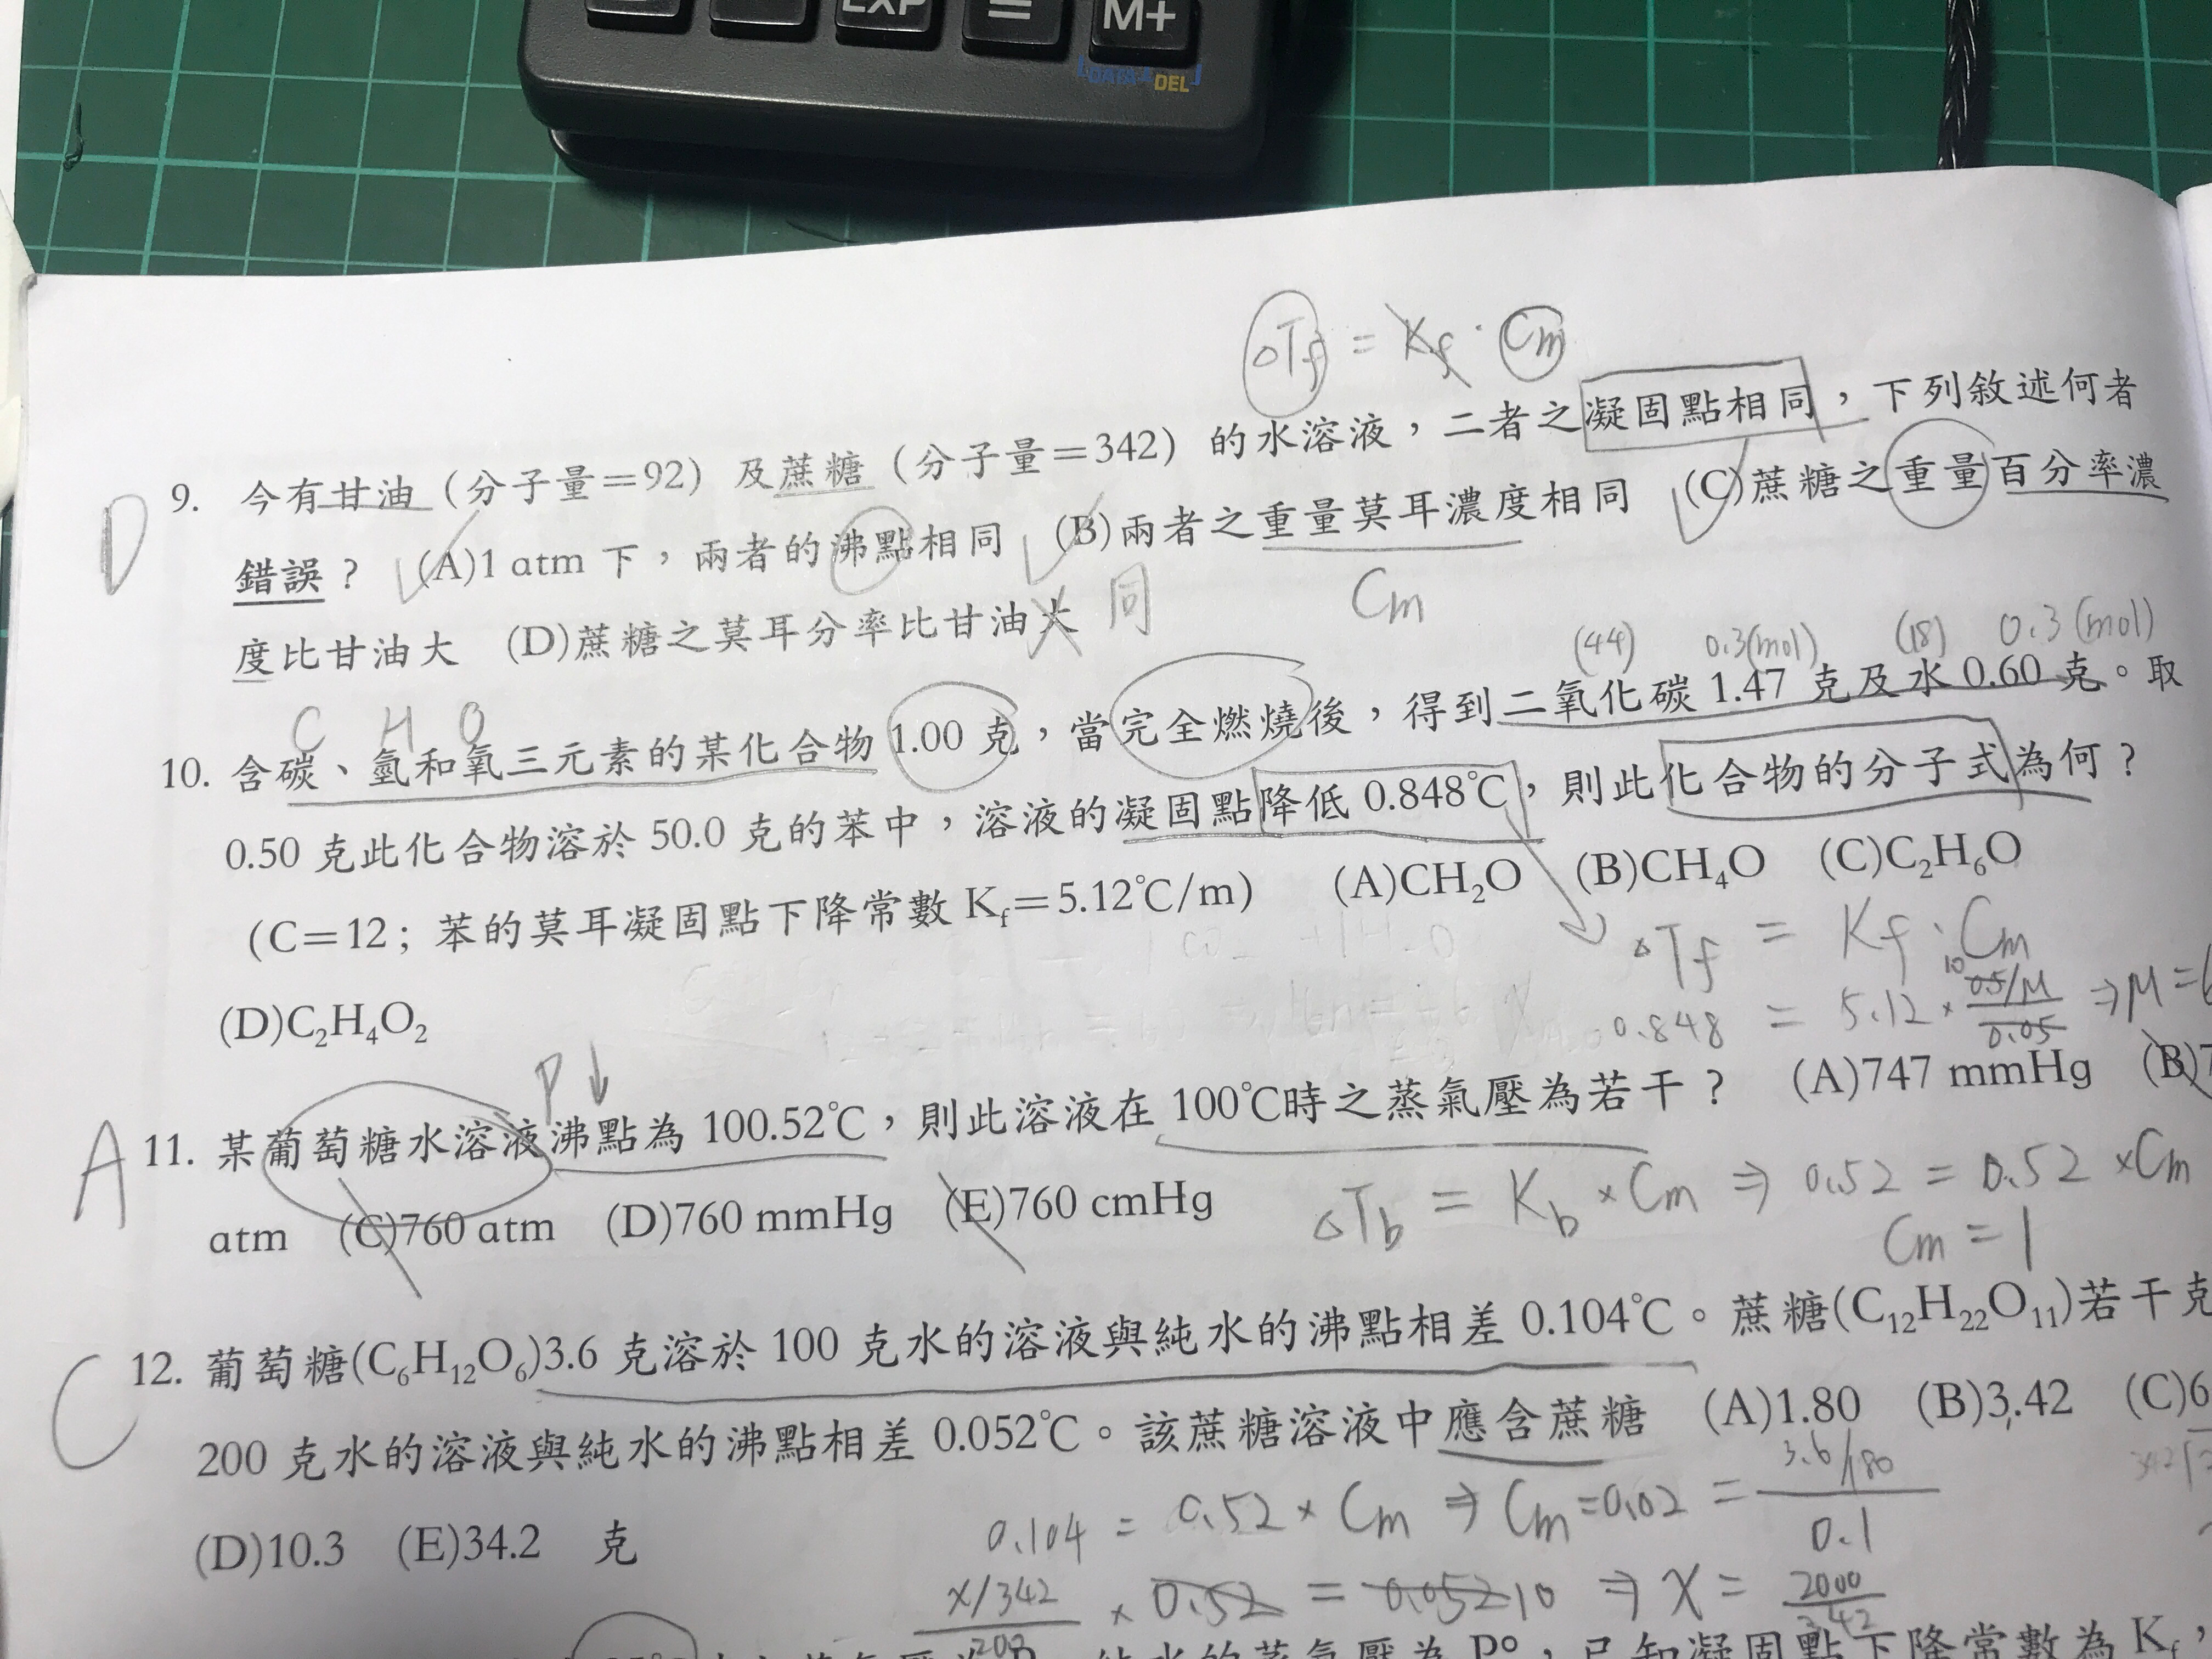 EXP = M+
DEL
△Tf = Kf · Cm
9. 今有甘油（分子量＝92）及蔗糖（分子量＝342）的水溶液，二者之凝固點相同，下列敘述何者
D
錯誤？ (A)1 atm 下，兩者的沸點相同 (B)兩者之重量莫耳濃度相同 (C)蔗糖之重量百分率濃
Cm
度比甘油大 (D)蔗糖之莫耳分率比甘油大 同
(44) 0.3(mol) (18) 0.3(mol)
C H O
10. 含碳、氫和氧三元素的某化合物 1.00 克，當完全燃燒後，得到二氧化碳 1.47 克及水 0.60 克。取
0.50 克此化合物溶於 50.0 克的苯中，溶液的凝固點降低 0.848℃，則此化合物的分子式為何？
(C＝12；苯的莫耳凝固點下降常數 Kf＝5.12℃/m) (A)CH2O (B)CH4O (C)C2H6O
△Tf = Kf · Cm
(D)C2H4O2
0.848 = 5.12 × 0.5/M / 0.05 ⇒ M =
10
P↓
A
11. 某葡萄糖水溶液沸點為 100.52℃，則此溶液在 100℃時之蒸氣壓為若干？ (A)747 mmHg (B)7
atm (C)760 atm (D)760 mmHg (E)760 cmHg
△Tb = Kb × Cm ⇒ 0.52 = 0.52 × Cm
Cm = 1
C
12. 葡萄糖(C6H12O6)3.6 克溶於 100 克水的溶液與純水的沸點相差 0.104℃。蔗糖(C12H22O11)若干克
200 克水的溶液與純水的沸點相差 0.052℃。該蔗糖溶液中應含蔗糖 (A)1.80 (B)3.42 (C)6
(D)10.3 (E)34.2 克
0.104 = 0.52 × Cm ⇒ Cm = 0.02 = 3.6/180 / 0.1
x/342 / 200 × 0.52 = 0.052 10 ⇒ x = 2000 / 342
純水的蒸氣壓為 P°，已知凝固點下降常數為 Kf，